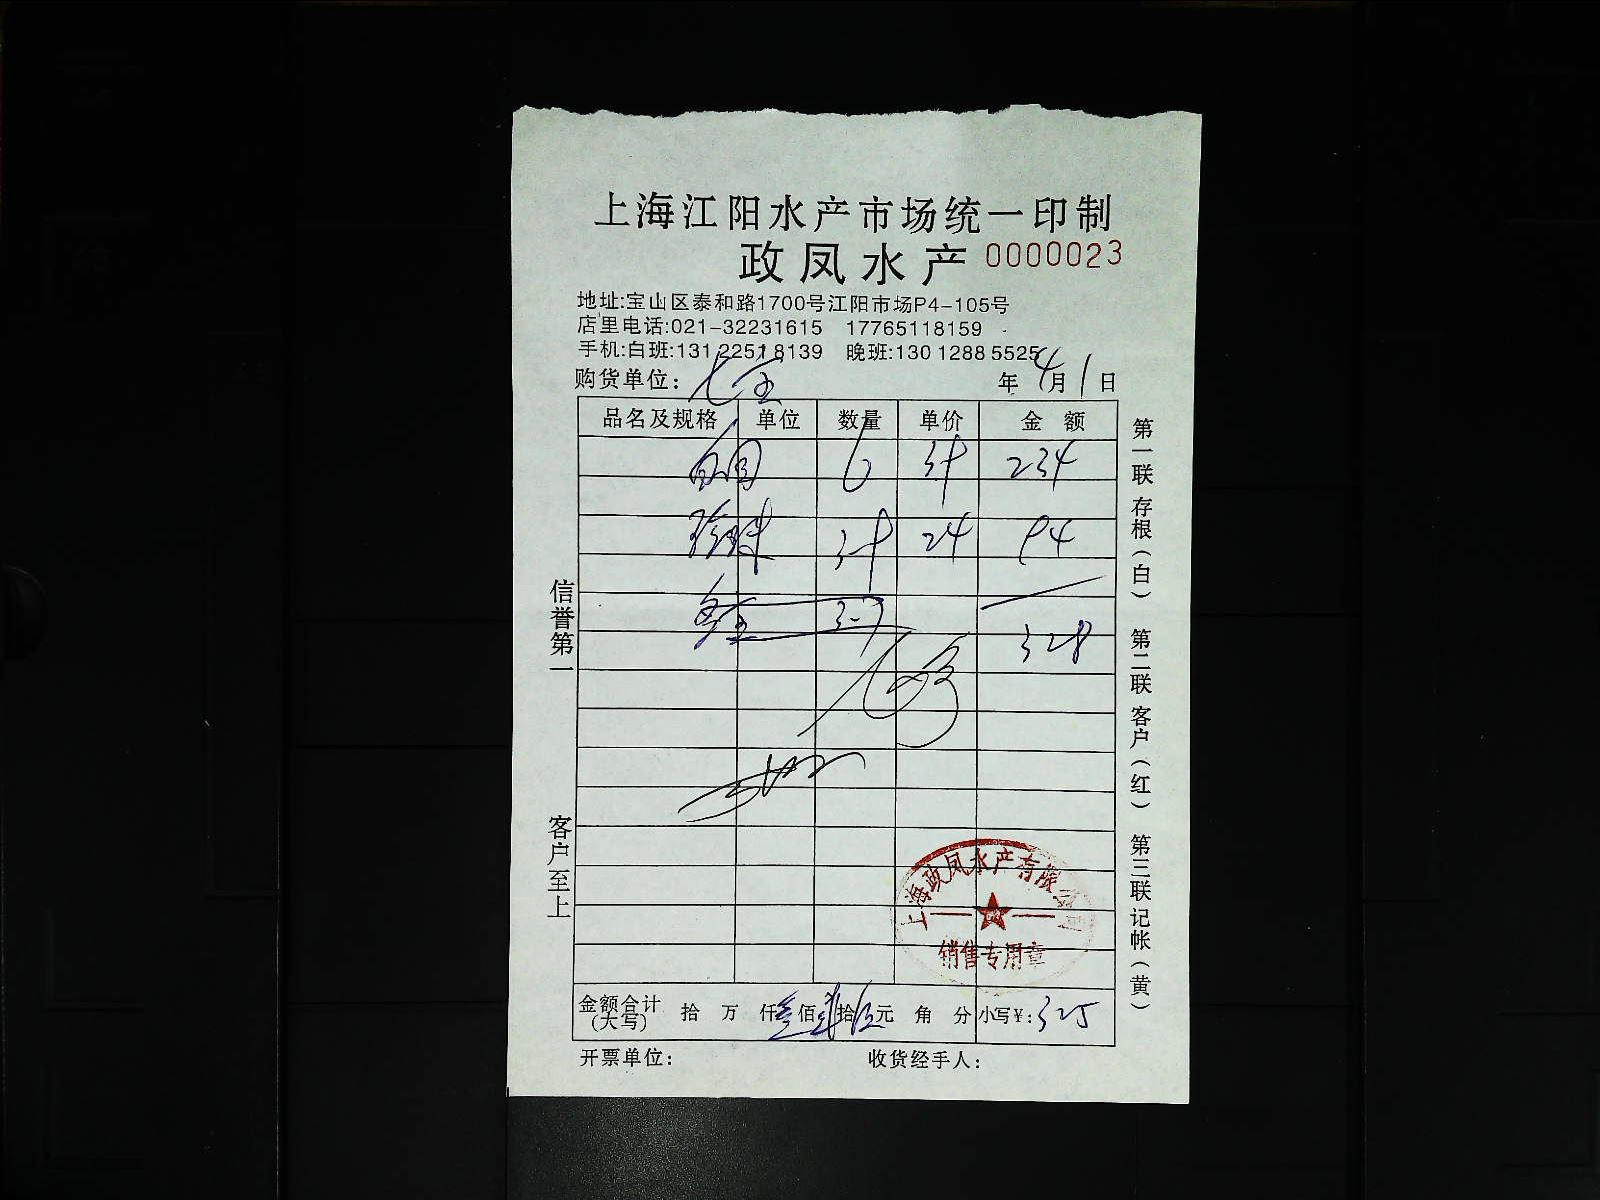 上海江阳水产市场统一印制
政凤水产 0000023
地址:宝山区泰和路1700号江阳市场P4-105号
店里电话:021-32231615 17765118159
手机:白班:131 2251 8139 晚班:130 1288 5525
购货单位: 七宝 年 4月 1日
品名及规格 单位 数量 单价 金额
6 39 234
珍珠 39 24 94
328
上海政凤水产有限公司
销售专用章
金额合计(大写) 拾 万 仟 叁 佰 贰 拾 伍 元 角 分 小写¥: 325
开票单位: 收货经手人:
信誉第一
客户至上
第一联 存根(白) 第二联 客户(红) 第三联 记帐(黄)